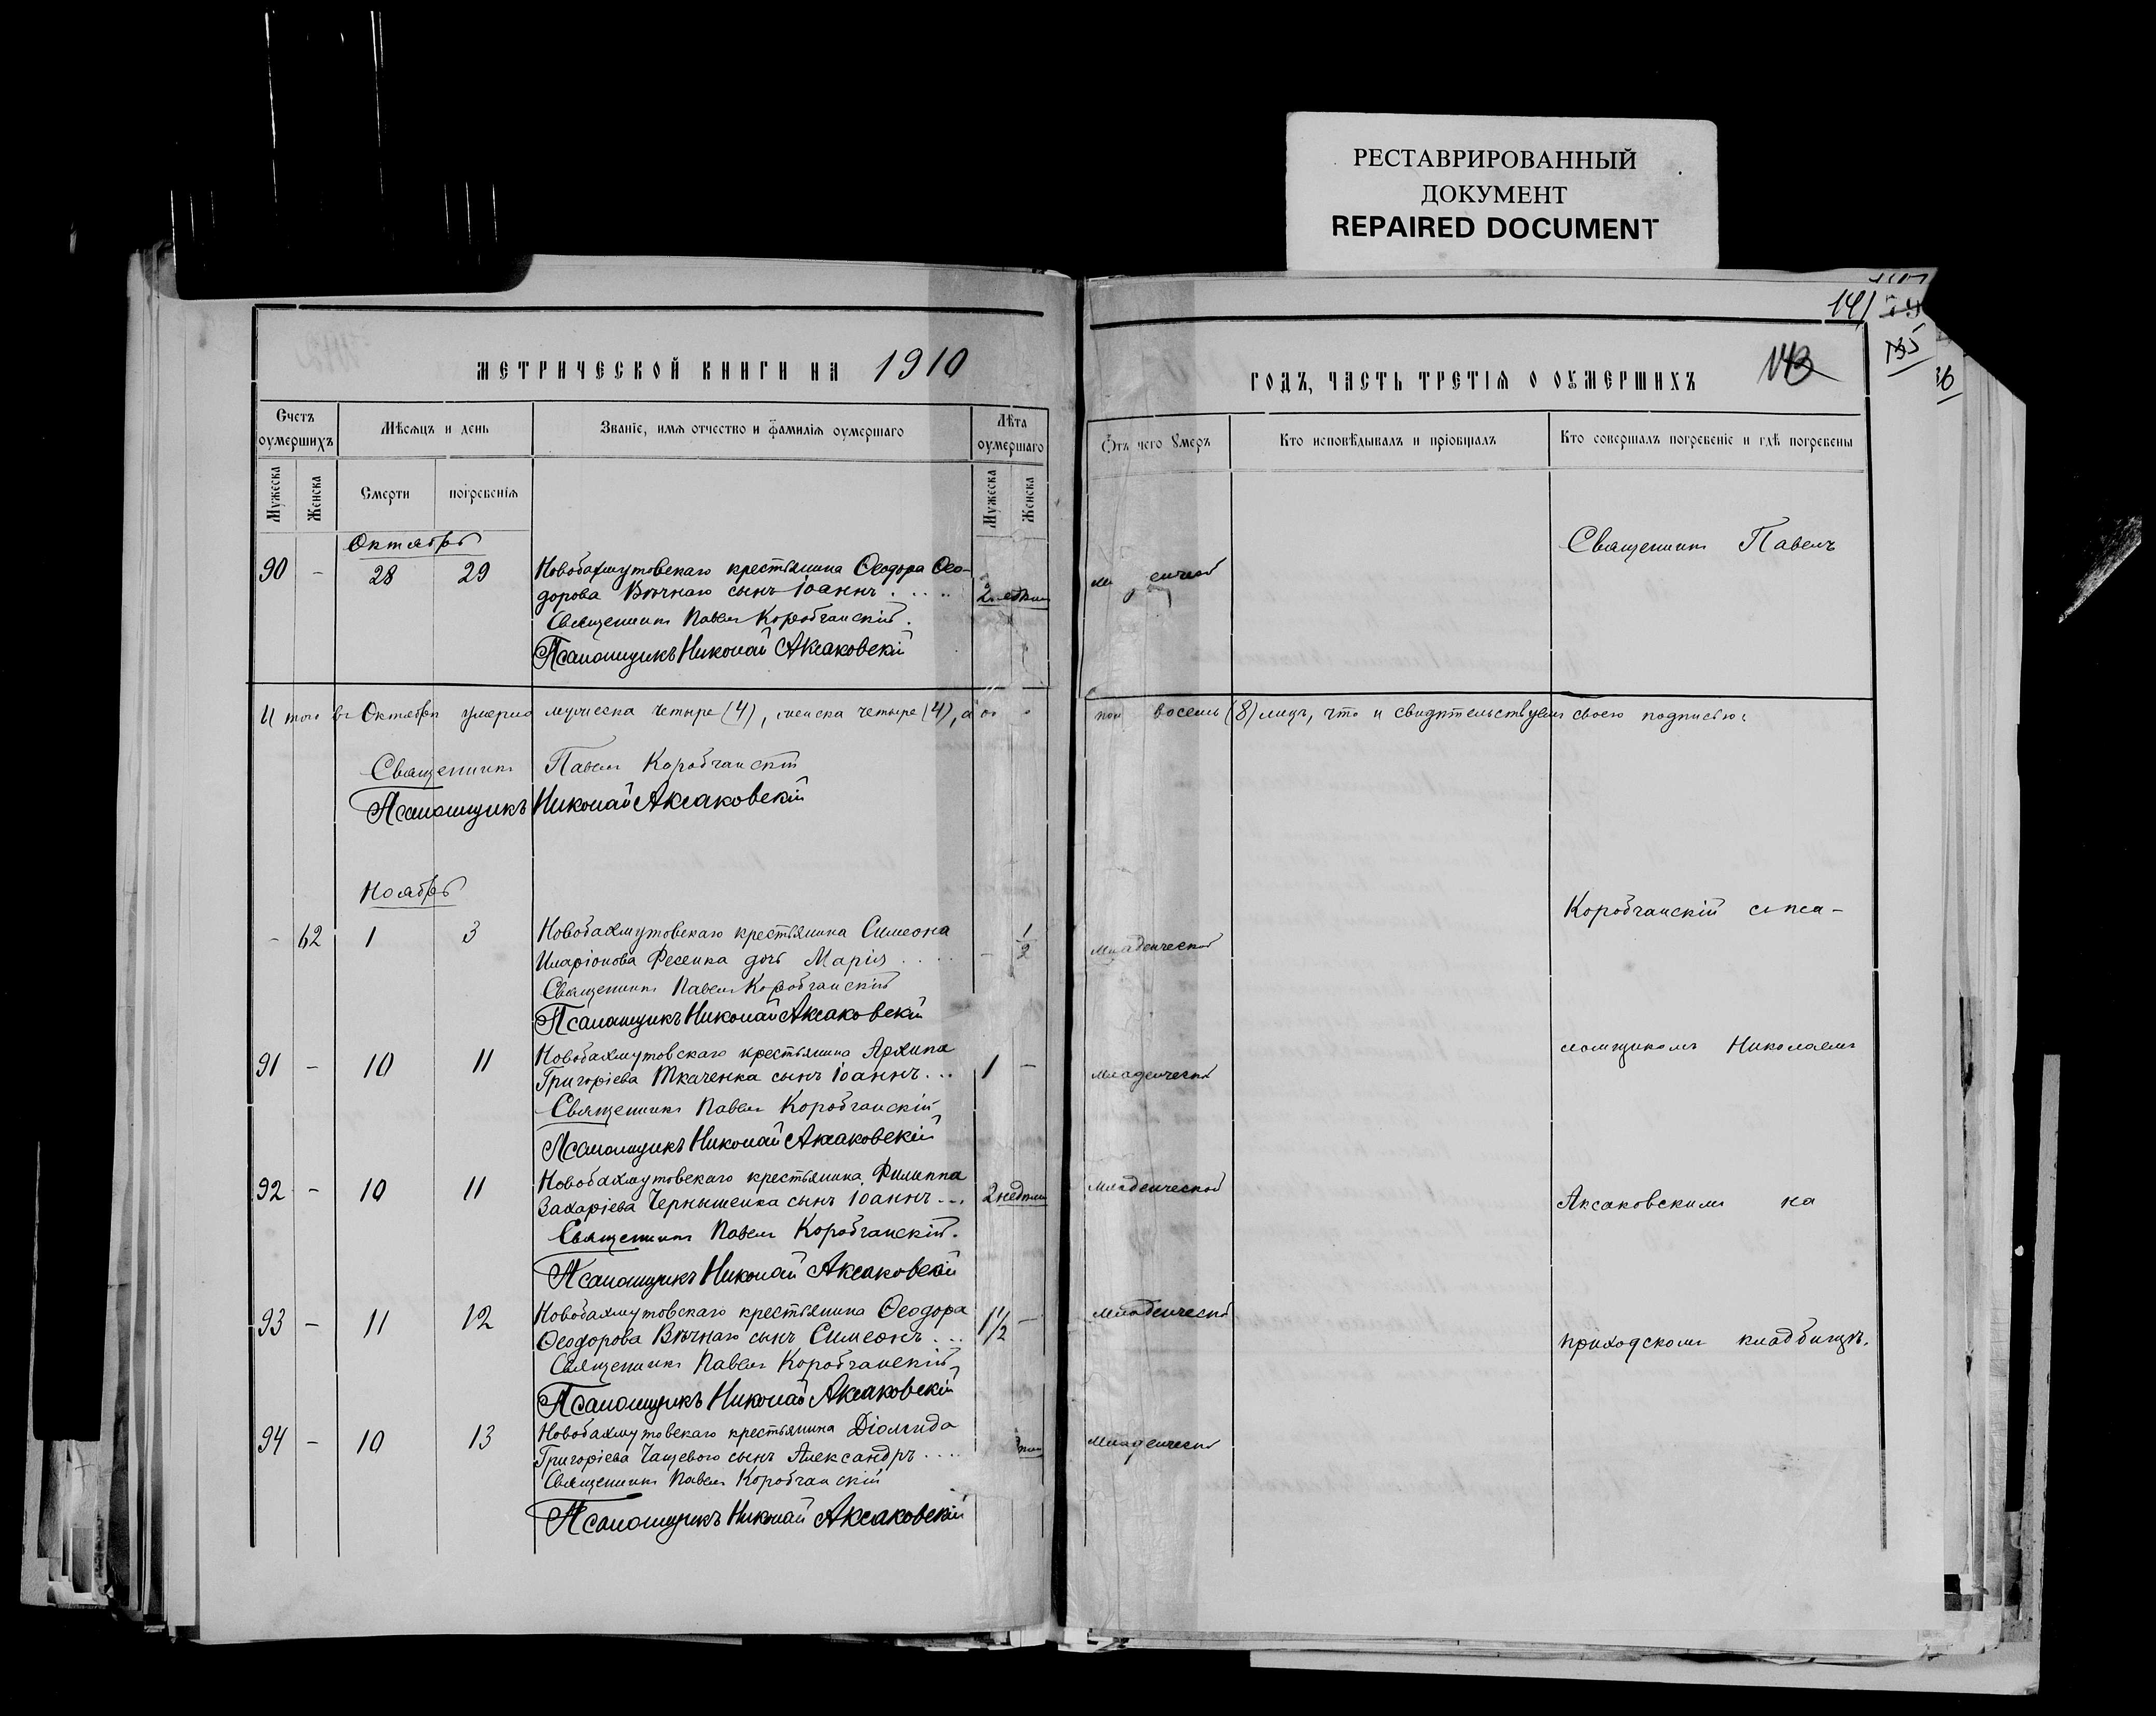 РЕСТАВРИРОВАННЫЙ
ДОКУМЕНТ
REPAIRED DOCUMENT
МЕТРИЧЕСКОЙ КНИГИ НА 1910
Счетъ оумершихъ
Мѣсяцъ и день
Званіе, имя отчество и фамилія оумершаго
Лѣта оумершаго
Мужеска
Женска
Смерти
погребенія
Мужеска
Женска
Октябрь
90 - 28 29 Новобахмутовскаго крестьянина Ѳеодора Ѳео-
дорова Вѣчнаго сынъ Іоаннъ . . . . 2
Священникъ Павелъ Коробчанскій.
Псаломщикъ Николай Аксаковскій
Итого въ Октябрѣ умерло мужеска четыре (4), женска четыре (4), а
Священникъ Павелъ Коробчанскій
Псаломщикъ Николай Аксаковскій
Ноябрь
- 62 1 3 Новобахмутовскаго крестьянина Симеона
Иларіонова Фесенка дочь Марія . . . . - 1/2
Священникъ Павелъ Коробчанскій
Псаломщикъ Николай Аксаковскій
91 - 10 11 Новобахмутовскаго крестьянина Архипа
Григоріева Ткаченка сынъ Іоаннъ . . . 1 -
Священникъ Павелъ Коробчанскій
Псаломщикъ Николай Аксаковскій
92 - 10 11 Новобахмутовскаго крестьянина Филиппа
Захаріева Чернышенка сынъ Іоаннъ . . . 2 недѣли
Священникъ Павелъ Коробчанскій.
Псаломщикъ Николай Аксаковскій
93 - 11 12 Новобахмутовскаго крестьянина Ѳеодора 1 1/2 -
Ѳеодорова Вѣчнаго сынъ Симеонъ . . .
Священникъ Павелъ Коробчанскій
Псаломщикъ Николай Аксаковскій
94 - 10 13 Новобахмутовскаго крестьянина Діомида
Григоріева Чащевого сынъ Александръ . . . .
Священникъ Павелъ Коробчанскій
Псаломщикъ Николай Аксаковскій
141
135
143
ГОДЪ, ЧАСТЬ ТРЕТІЯ О ОУМЕРШИХЪ
Отъ чего умеръ
Кто исповѣдывалъ и пріобщалъ
Кто совершалъ погребеніе и гдѣ погребены
Священникъ Павелъ
восемь (8) лицъ, что и свидѣтельствуемъ своею подписью:
Коробчанскій съ пса-
младенческой
ломщикомъ Николаемъ
младенческой
младенческой
Аксаковскимъ на
младенческой
приходскомъ кладбищѣ.
младенческой